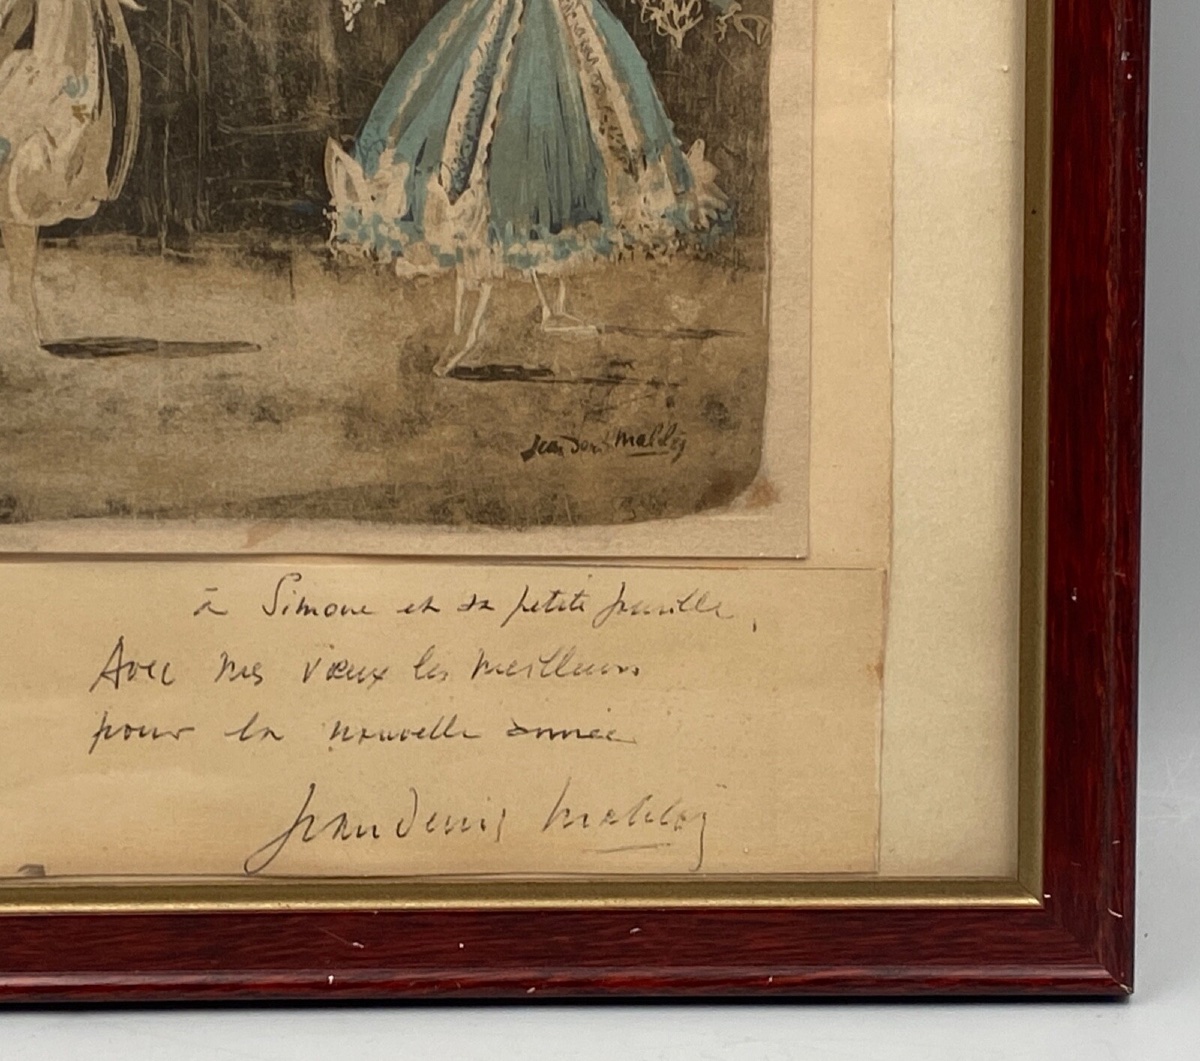 Jean Denis Malclès
à Simone et sa petite famille,
Avec mes vœux les meilleurs
pour la nouvelle année
Jean Denis Malclès